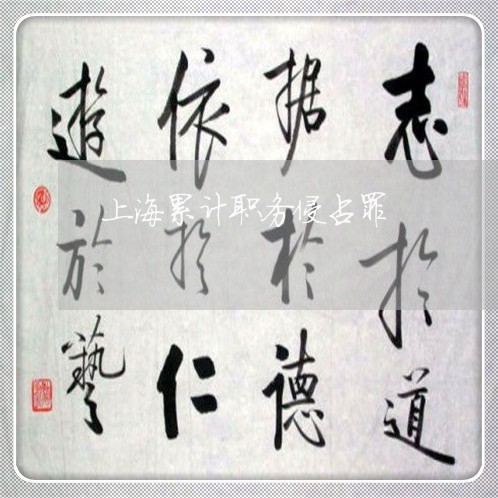 志於道
据於德
依於仁
遊於藝
上海累计职务侵占罪